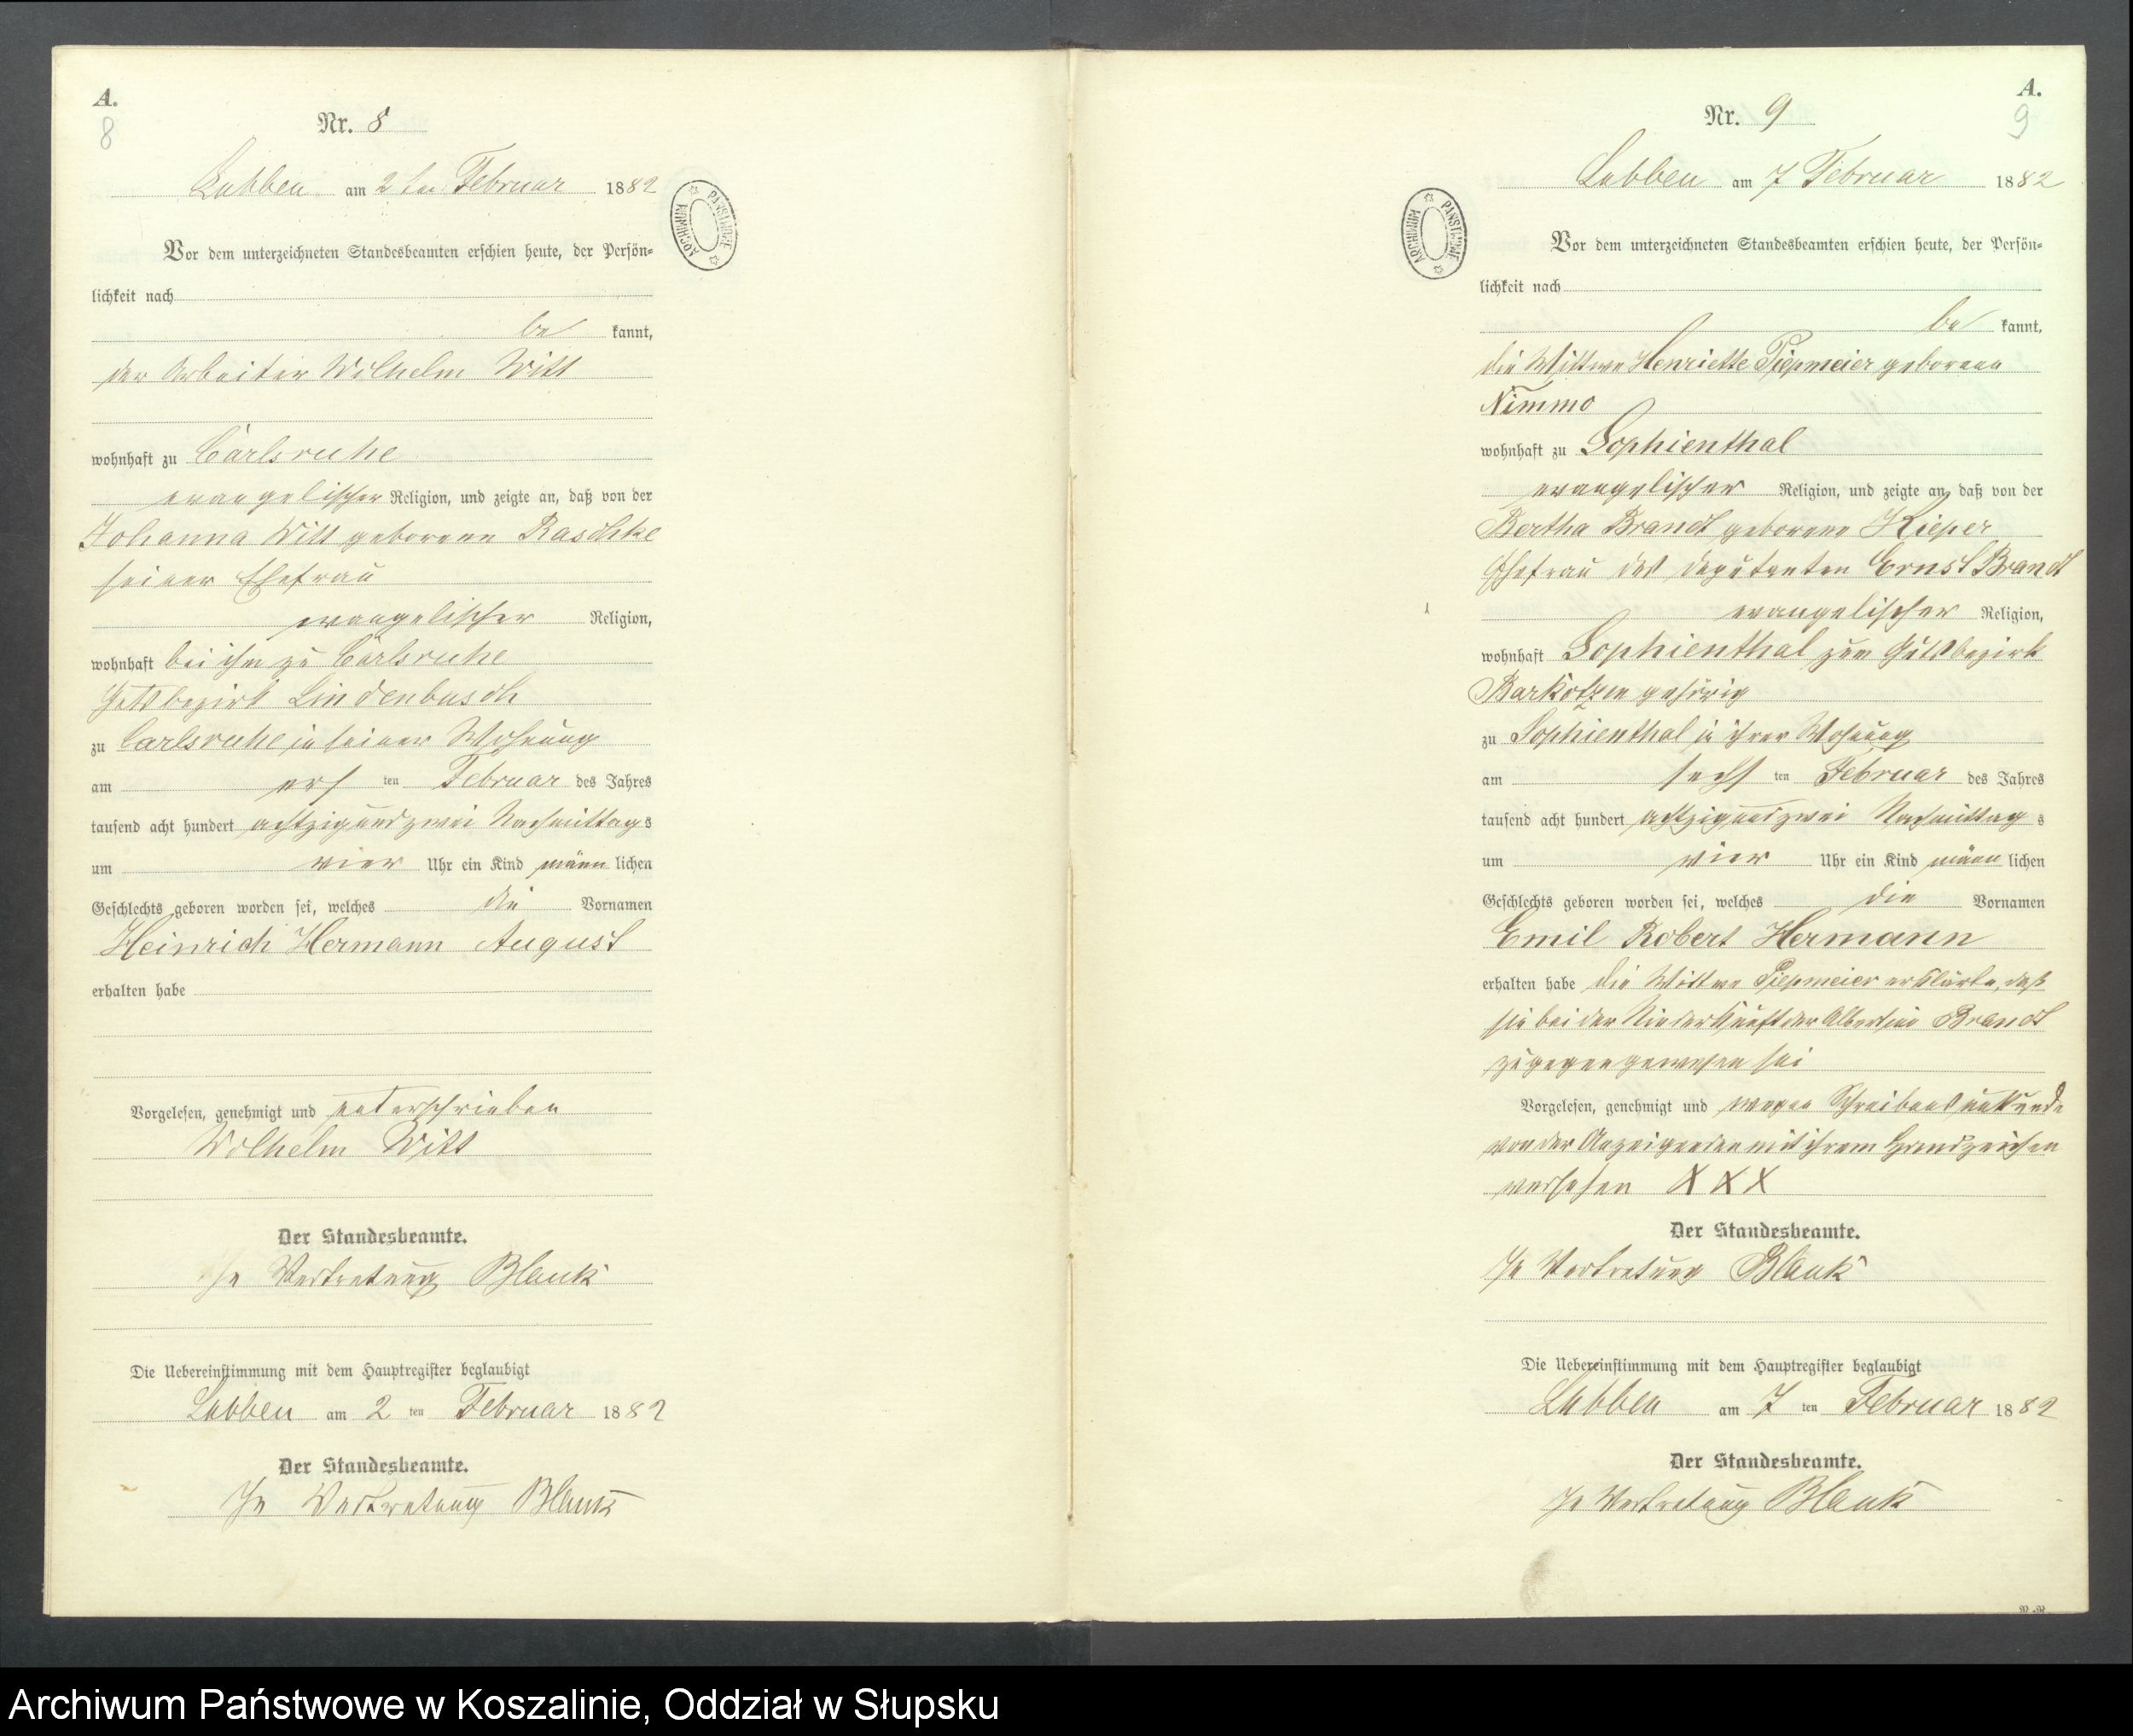 A.
8
Nr. 8
Lubben am 2ten Februar 1882
Vor dem unterzeichneten Standesbeamten erschien heute, der Persön-
lichkeit nach
be kannt,
der Arbeiter Wilhelm Witt
wohnhaft zu Carlsruhe
evangelischer Religion, und zeigte an, daß von der
Johanna Witt geborene Raschke
seiner Ehefrau
evangelischer Religion,
wohnhaft bei ihm zu Carlsruhe
Gutsbezirk Lindenbusch
zu Carlsruhe in seiner Wohnung
am ers ten Februar des Jahres
tausend acht hundert achtzigundzwei Nachmittags
um vier Uhr ein Kind männ lichen
Geschlechts geboren worden sei, welches die Vornamen
Heinrich Hermann August
erhalten habe
Vorgelesen, genehmigt und unterschrieben
Wilhelm Witt
Der Standesbeamte.
In Vertretung Blank
Die Uebereinstimmung mit dem Hauptregister beglaubigt
Lubben am 2 ten Februar 1882
Der Standesbeamte.
In Vertretung Blank
ARCHIWUM PAŃSTWOWE
A.
9
Nr. 9
Lubben am 7 Februar 1882
Vor dem unterzeichneten Standesbeamten erschien heute, der Persön-
lichkeit nach
be kannt,
die Wittwe Henriette Piepmeier geborene
Nimmo
wohnhaft zu Sophienthal
evangelischer Religion, und zeigte an, daß von der
Bertha Brandt geborene Kieper
Ehefrau des Deputanten Ernst Brandt
evangelischer Religion,
wohnhaft Sophienthal zum Gutsbezirk
Barkotzen gehörig
zu Sophienthal in ihrer Wohnung
am sechs ten Februar des Jahres
tausend acht hundert achtzigundzwei Nachmittag s
um vier Uhr ein Kind männ lichen
Geschlechts geboren worden sei, welches die Vornamen
Emil Robert Hermann
erhalten habe die Wittwe Piepmeier erklärte, daß
sie bei der Niederkunft der Albertine Brandt
zugegen gewesen sei
Vorgelesen, genehmigt und wegen Schreibensunkunde
von der Anzeigenden mit ihrem Handzeichen
versehen XXX
Der Standesbeamte.
In Vertretung Blank
Die Uebereinstimmung mit dem Hauptregister beglaubigt
Lubben am 7 ten Februar 1882
Der Standesbeamte.
In Vertretung Blank
ARCHIWUM PAŃSTWOWE
Archiwum Państwowe w Koszalinie, Oddział w Słupsku